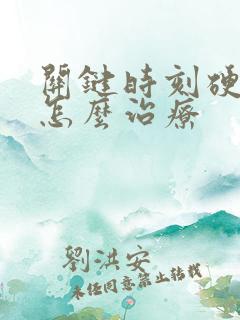 關鍵時刻硬
怎麼治療
劉洪安
未經同意禁止轉載